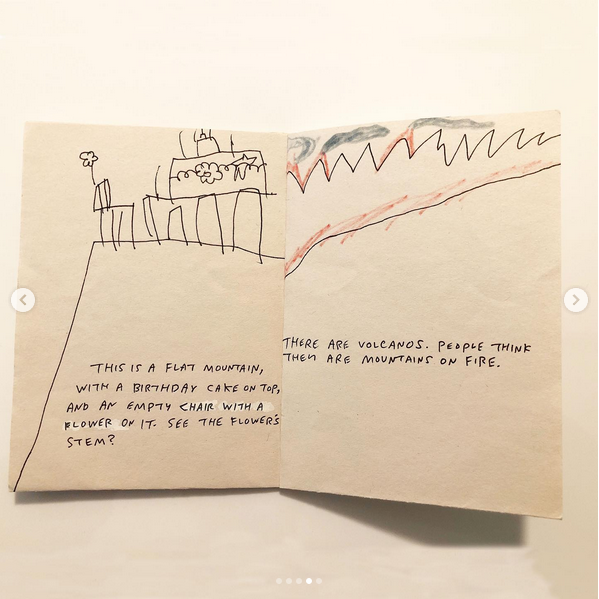 THIS IS A FLAT MOUNTAIN,
WITH A BIRTHDAY CAKE ON TOP,
AND AN EMPTY CHAIR WITH A
FLOWER ON IT. SEE THE FLOWER'S
STEM?
THERE ARE VOLCANOS. PEOPLE THINK
THEY ARE MOUNTAINS ON FIRE.